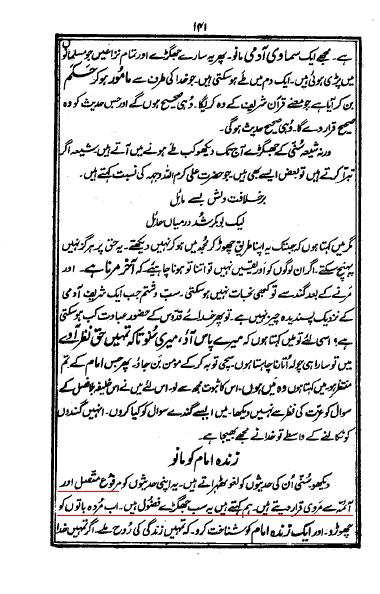 ۱۴۱
ہے۔ مجھے ایک سماوی آدمی مانو۔ پھر یہ سارے جھگڑے اور تمام نزاعیں جو مسلمانوں
میں پڑی ہوئی ہیں۔ ایک دم میں طے ہو سکتی ہیں۔ جو خدا کی طرف سے مامور ہو کر حکم
بن کر آیا ہے جو معنے قرآن شریف کے وہ کریگا۔ وُہی صحیح ہوں گے اور جس حدیث کو وہ
صحیح قرار دے گا۔ وُہی صحیح حدیث ہو گی۔
ورنہ شیعہ سُنّی کے جھگڑے آج تک دیکھو کب طے ہونے میں آتے ہیں۔ شیعہ اگر
تبرّا کرتے ہیں تو بعض ایسے بھی ہیں۔ جو حضرت علی کرم اللہ وجہہ کی نسبت کہتے ہیں۔
برخلافت دلش بسے مائل
لیک بوبکر شد درمیاں حائل
مگر میں کہتا ہوں کہ جبتک یہ اپنا طریق چھوڑ کر مجھ میں ہو کر نہیں دیکھتے۔ یہ حق پر ہرگز نہیں
پہنچ سکتے۔ اگر ان لوگوں کو اور یقین نہیں تو اتنا تو ہونا چاہیئے کہ آخر مرنا ہے۔ اور
مرنے کے بعد گند سے تو کبھی نجات نہیں ہو سکتی۔ سبّ و شتم جب ایک شریف آدمی
کے نزدیک پسندیدہ چیز نہیں ہے۔ تو پھر خدائے قدوس کے حضور عبادت کب ہو سکتی
ہے؟ اسی لئے تو میں کہتا ہوں کہ میرے پاس آؤ، میری سُنو تا کہ تمہیں حق نظر آوے
میں تو سارا ہی چولہ اُتارنا چاہتا ہوں۔ سچی توبہ کر کے مومن بن جاؤ۔ پھر جس امام کے تم
منتظر ہو میں کہتا ہوں وہ میں ہوں، اس کا ثبوت مجھ سے لو۔ اس لئے میں نے اس خلیفہ بلا فصل کے
سوال کو عزت کی نظر سے نہیں دیکھا۔ میں ایسے گندے سوال کو کیا کروں۔ انہیں گندوں
کو نکالنے کے واسطے تو خدا نے مجھے بھیجا ہے۔
زندہ امام کو مانو
دیکھو سُنّی اُن کی حدیثوں کو لغو ٹھہراتے ہیں۔ یہ اپنی حدیثوں کو مرفوع متصل اور
آئمّہ سے مَروی قرار دیتے ہیں۔ ہم کہتے ہیں یہ سب جھگڑے فضول ہیں۔ اب مُردہ باتوں کو
چھوڑو۔ اور ایک زندہ امام کو شناخت کرو۔ کہ تمہیں زندگی کی رُوح ملے۔ اگر تمہیں خدا